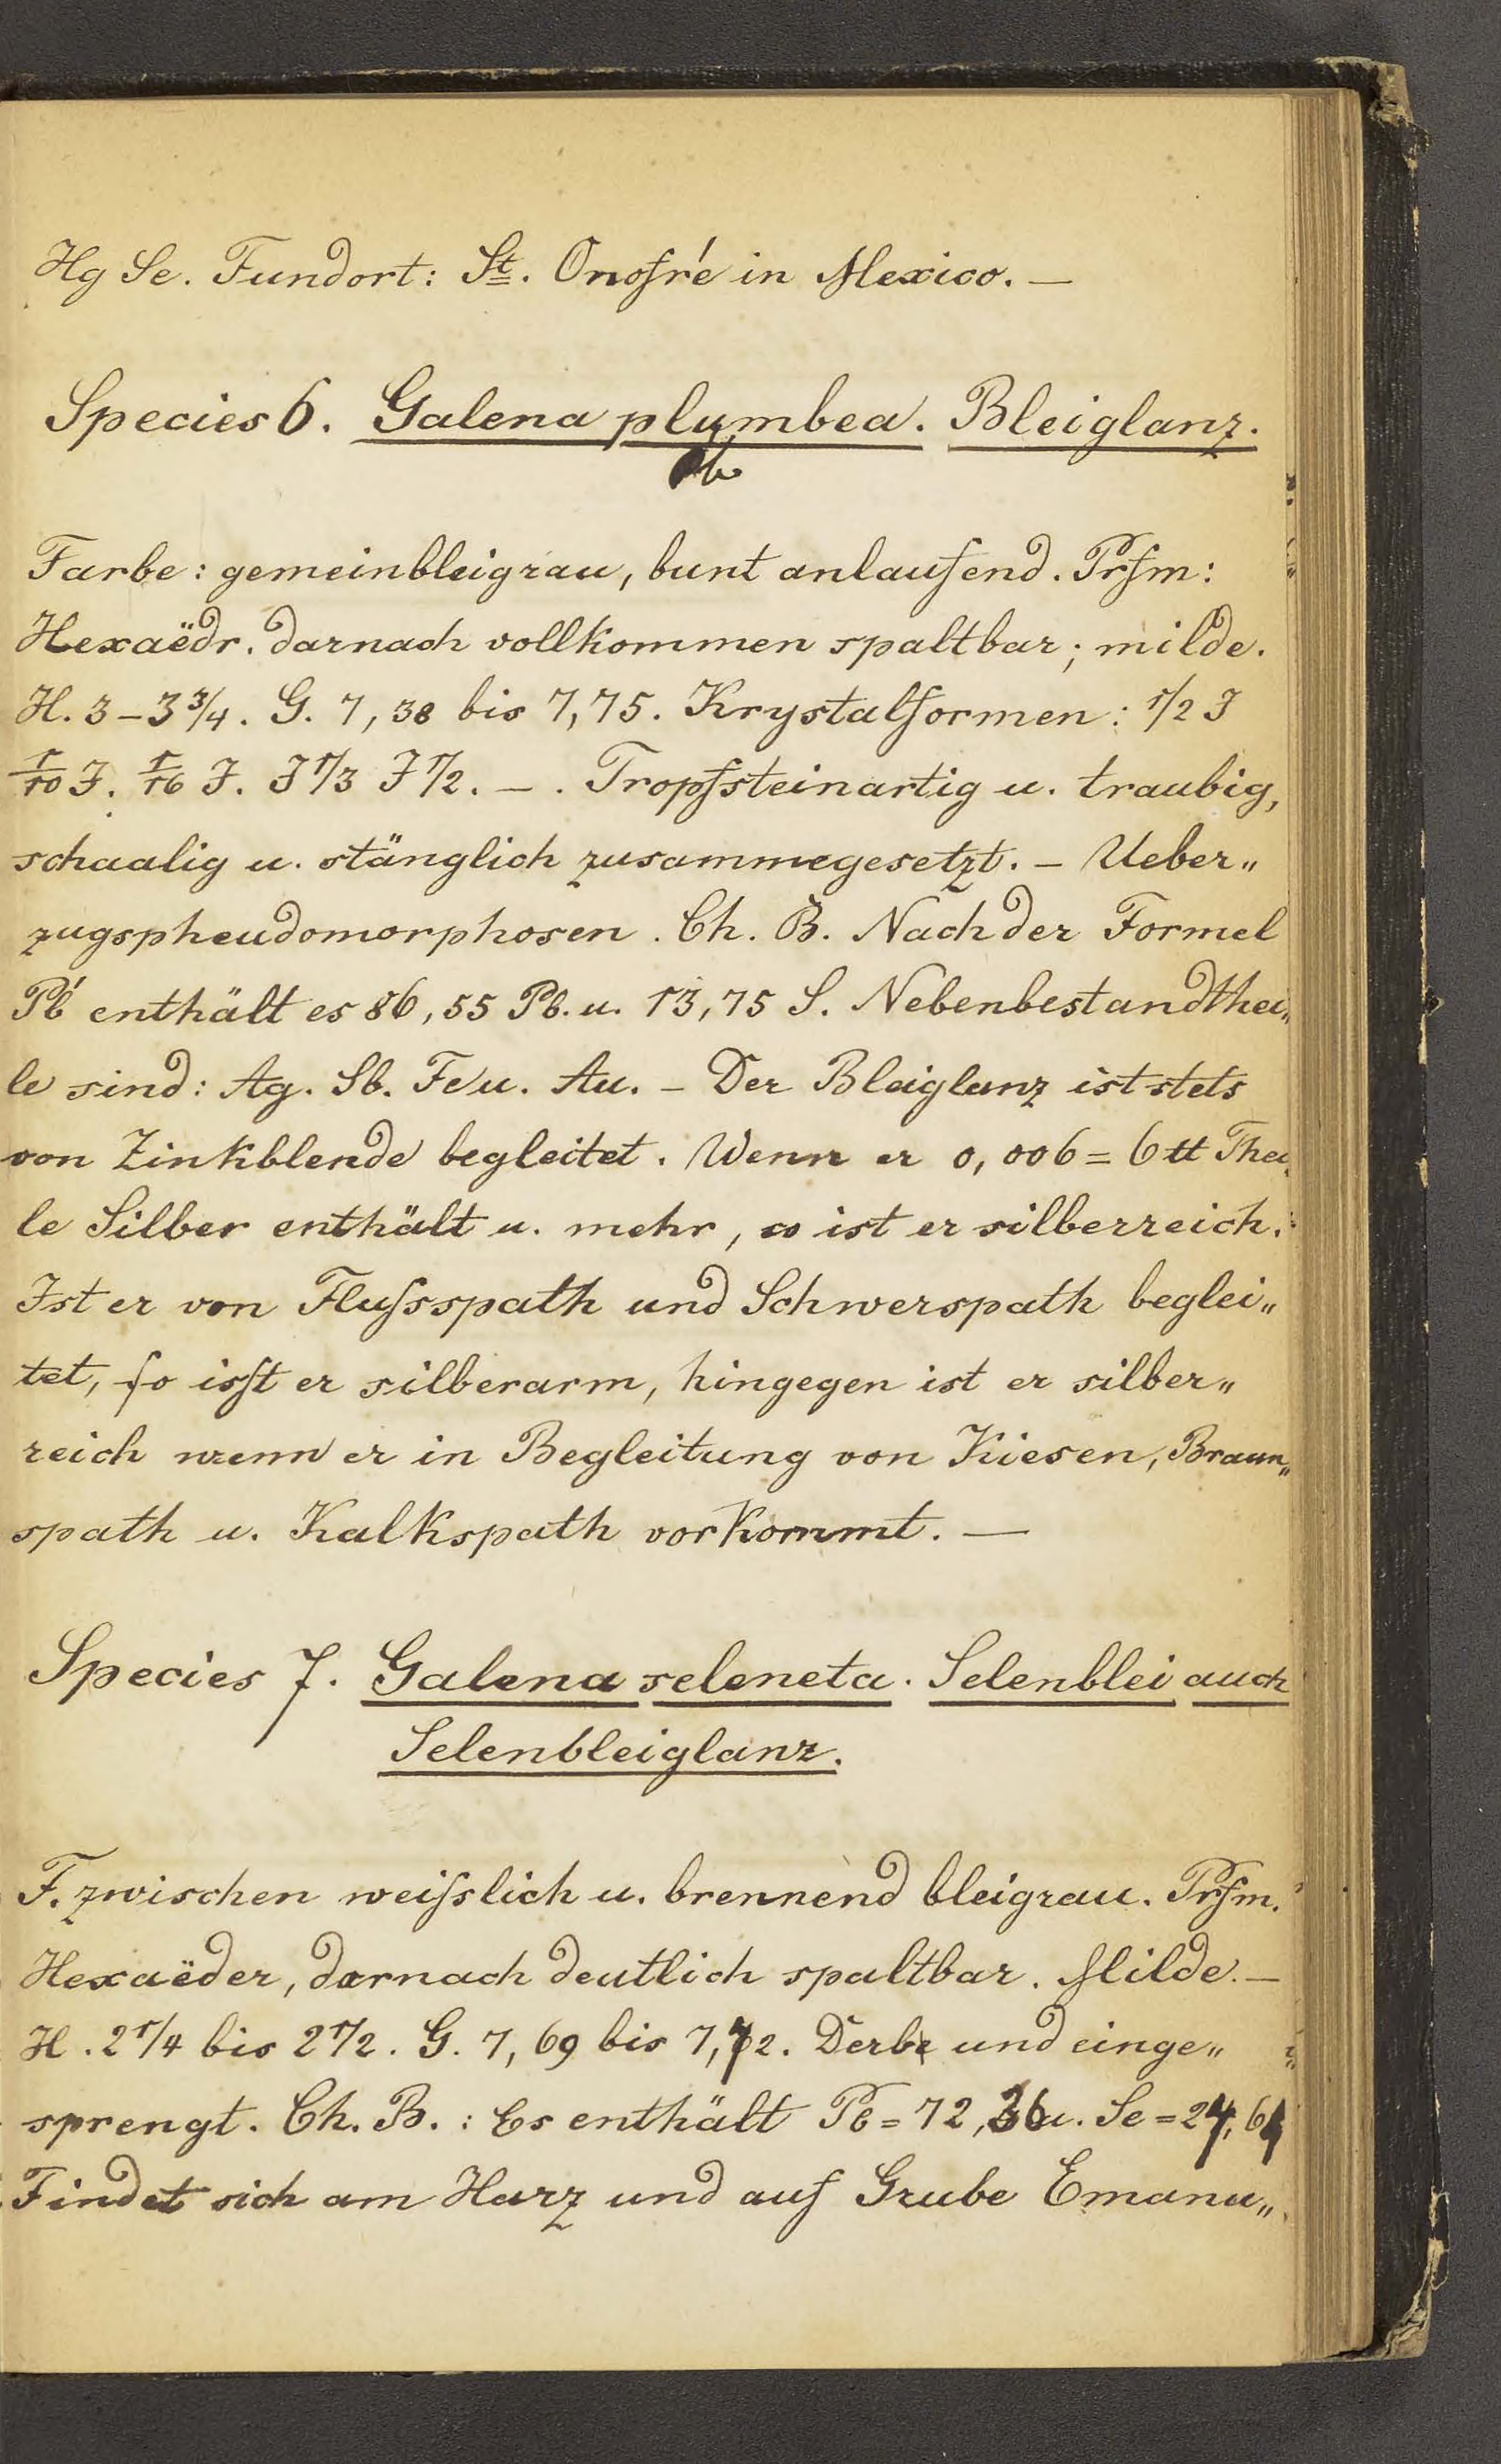 Hg Se. Fundort: St. Onofré in Mexico. —
Species 6. Galena plumbea. Bleiglanz.
Farbe: gemeinbleigrau, bunt anlaufend. Prfm:
Hexaëdr. darnach vollkommen spaltbar; milde.
H. 3 – 3 3/4. G. 7,38 bis 7,75. Krystalformen: 1/2 J
1/10 J. 1/16 J. J 1/3 J 1/2. – . Tropfsteinartig u. traubig,
schaalig u. stänglich zusammegesetzt. – Ueber„
zugspheudomorphosen. Ch. B. Nach der Formel
Pb' enthält es 86,55 Pb. u. 13,75 S. Nebenbestandthei„
le sind: Ag. Sb. Fe u. Au. – Der Bleiglanz ist stets
von Zinkblende begleitet. Wenn er 0,006 = 6 tt Thei„
le Silber enthält u. mehr, so ist er silberreich.
Ist er von Flußspath und Schwerspath beglei„
tet, so isst er silberarm, hingegen ist er silber„
reich wenn er in Begleitung von Kiesen, Braun„
spath u. Kalkspath vorkommt. —
Species 7. Galena seleneta. Selenblei auch
Selenbleiglanz.
F. zwischen weißlich u. brennend bleigrau. Prfm.
Hexaëder, darnach deutlich spaltbar. Milde. —
H. 2 1/4 bis 2 1/2. G. 7,69 bis 7,72. Derbe und einge„
sprengt. Ch. B.: Es enthält Pb = 72,36 u. Se = 24,64
Findet sich am Harz und auf Grube Emanu„